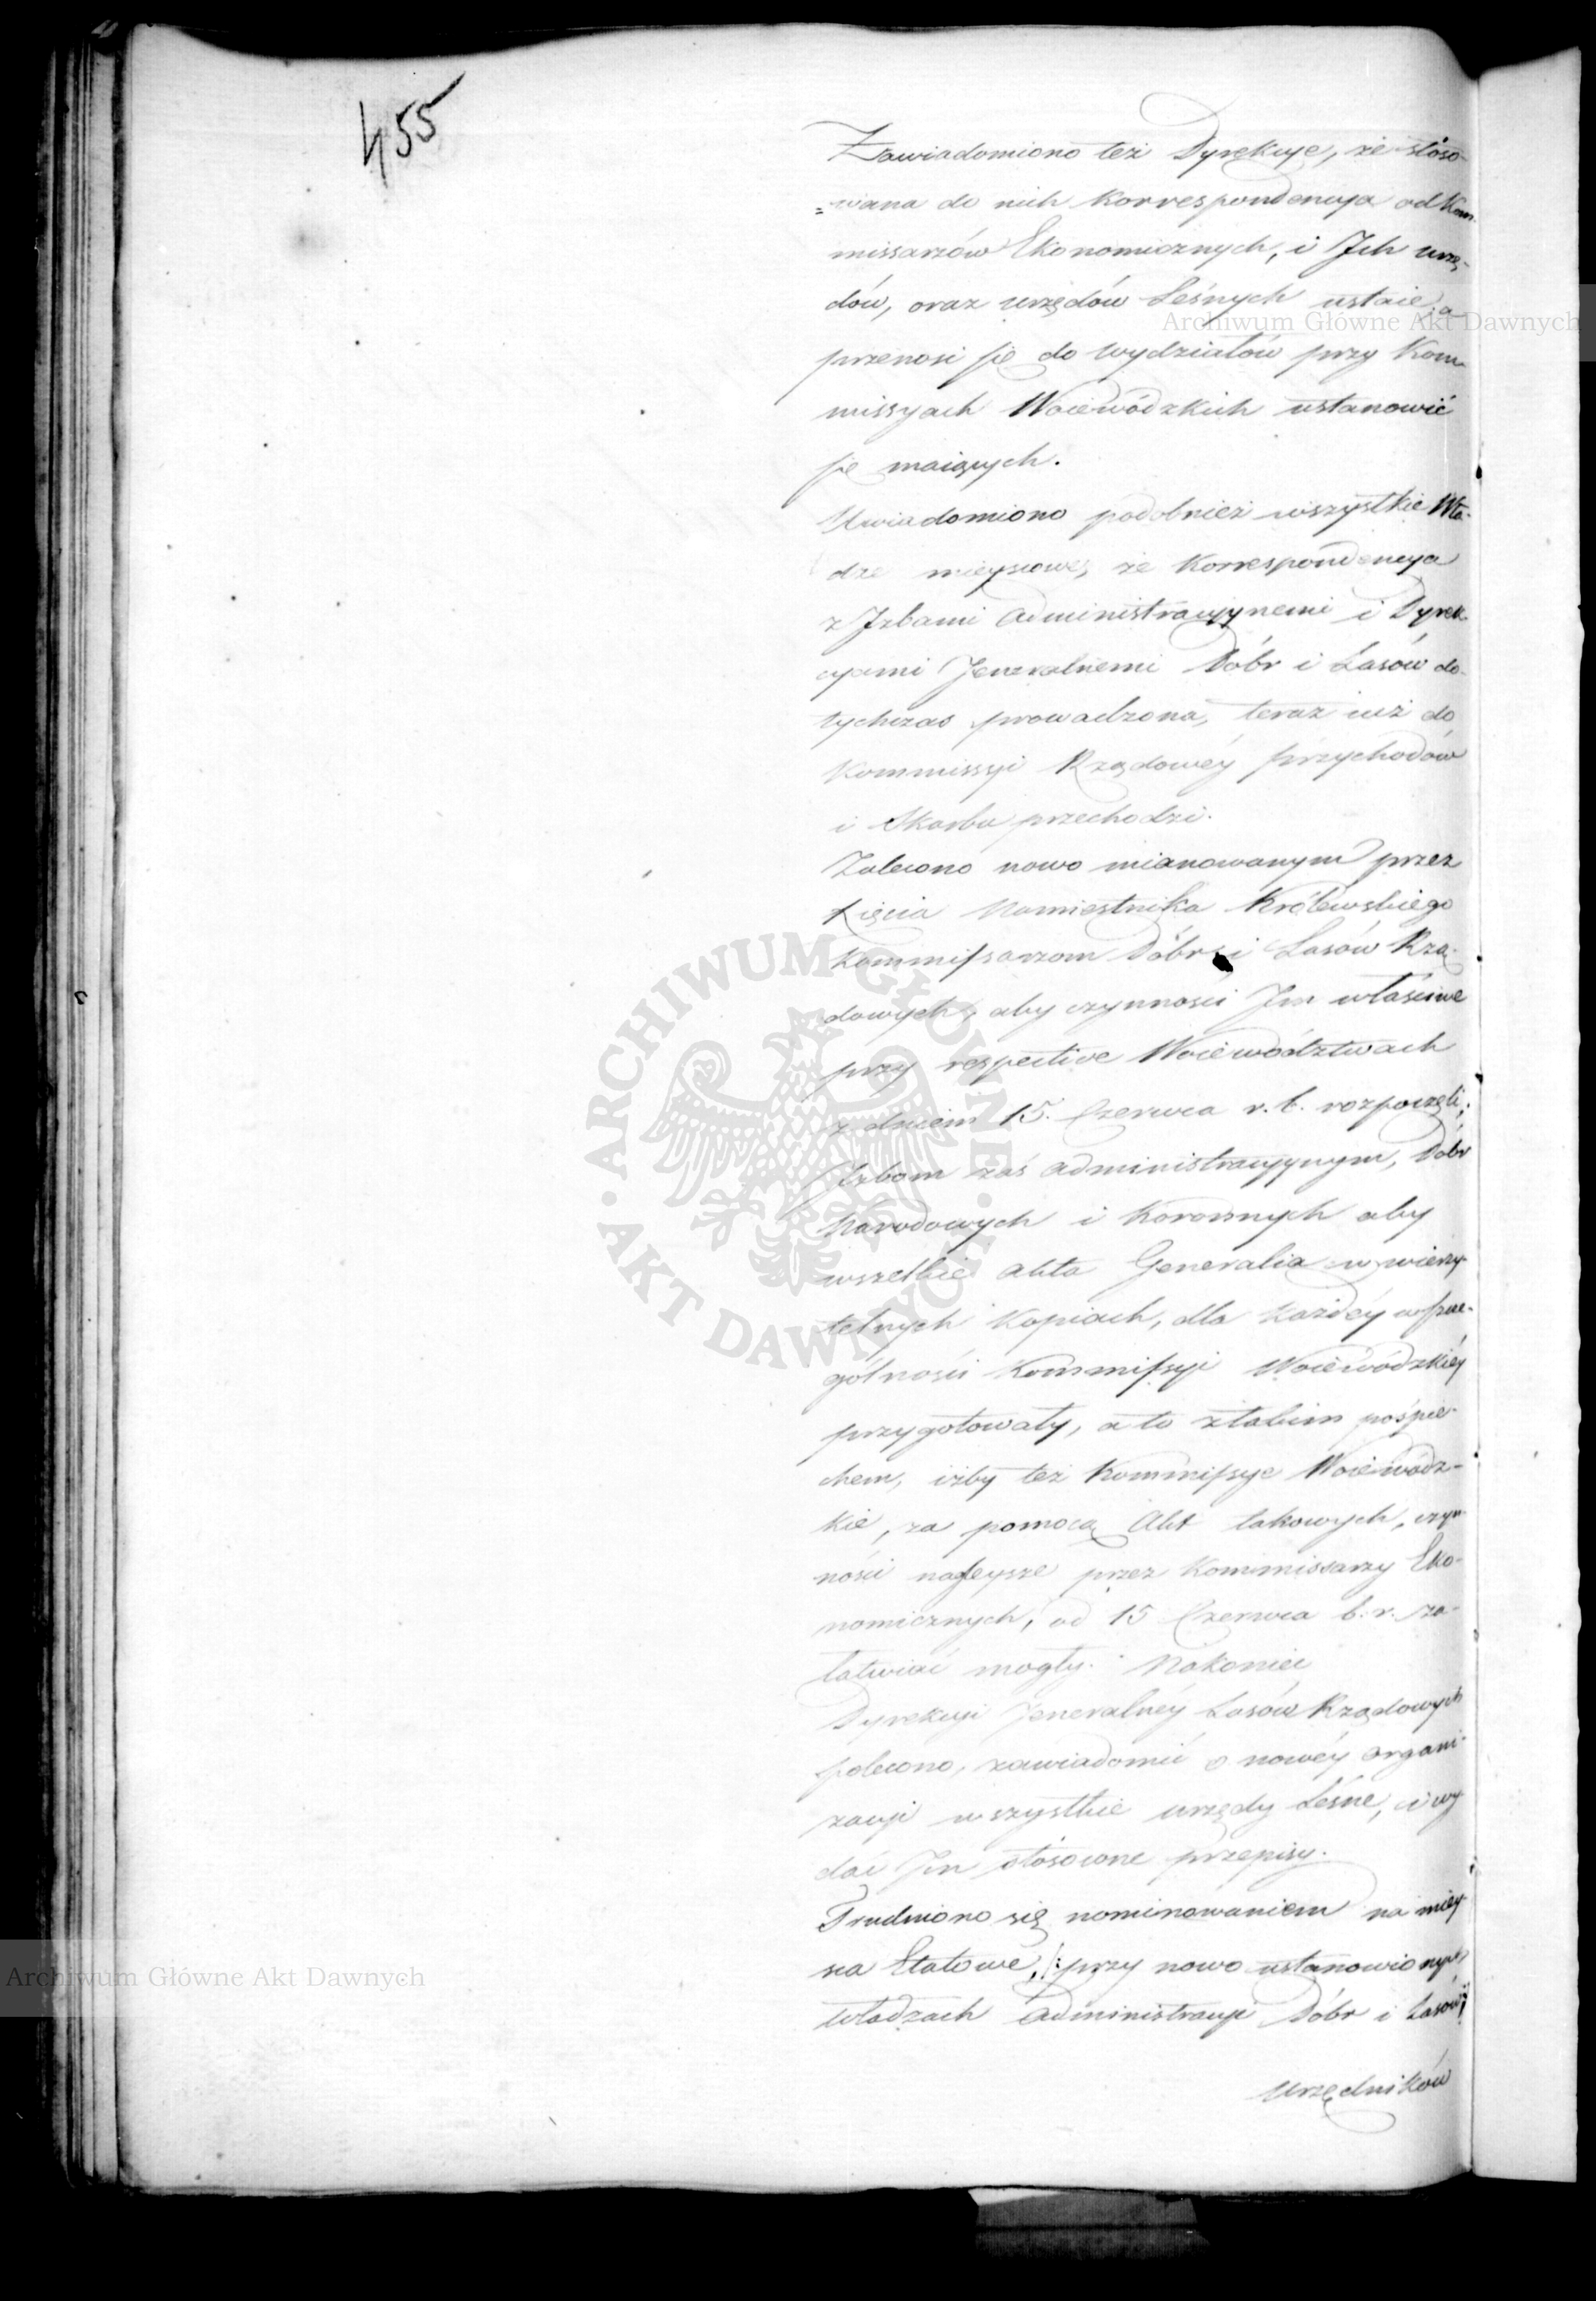 455
Zawiadomiono też Dyrekcye, że stoso-
=wana do nich korrespondencya od Kom-
missarzów Ekonomicznych, i Jch urzę-
dów, oraz urzędów Leśnych ustaie, a
przenosi się do wydziałów przy Kom-
missyach Woiewódzkich ustanowić
się maiących.
Uwiadomiono podobnież wszystkie Wła-
dze mieyscowe, że Korrespondencya
z Jzbami Administracyjnemi i Dyrek-
cyami Jeneralnemi Dóbr i Lasów do-
tychczas prowadzona, teraz iuż do
Kommissyi Rządowéy przychodów
i Skarbu przechodzi.
Zalecono nowo mianowanym przez
Xięcia Namiestnika Królewskiego
Kommissarzom Dóbr i Lasów Rzą-
dowych, aby czynności Jm właściwe
przy respective Woiewództwach
z dniem 15. Czerwca r. b. rozpoczęli;
Jzbom zaś administracyjnym, Dóbr
Narodowych i Koronnych aby
wszelkie akta Generalia w wierzy-
telnych kopiach, dla każdéy w szcze-
gólności Kommissyi Woiewódzkiéy
przygotowały, a to z takim pośpie-
chem, iżby też Kommissye Woiewódz-
kie, za pomocą Akt takowych, czyn-
ności przez Kommissarzy Eko-
nomicznych, od 15 Czerwca b. r. za-
łatwiać mogły. Nakoniec
Dyrekcyi Jeneralnéy Lasów Rządowych
polecono, zawiadomić o nowéy organi-
zacyi wszystkie urzędy Leśne, i wy
dać Jm stósowne przepisy.
Trudniono się nominowaniem na miey-
sca Etatowe, /: przy nowo ustanowionych
władzach Administracyi Dóbr i Lasów :/
Urzędników
Archiwum Główne Akt Dawnych
ARCHIWUM GŁÓWNE · AKT DAWNYCH ·
Archiwum Główne Akt Dawnych